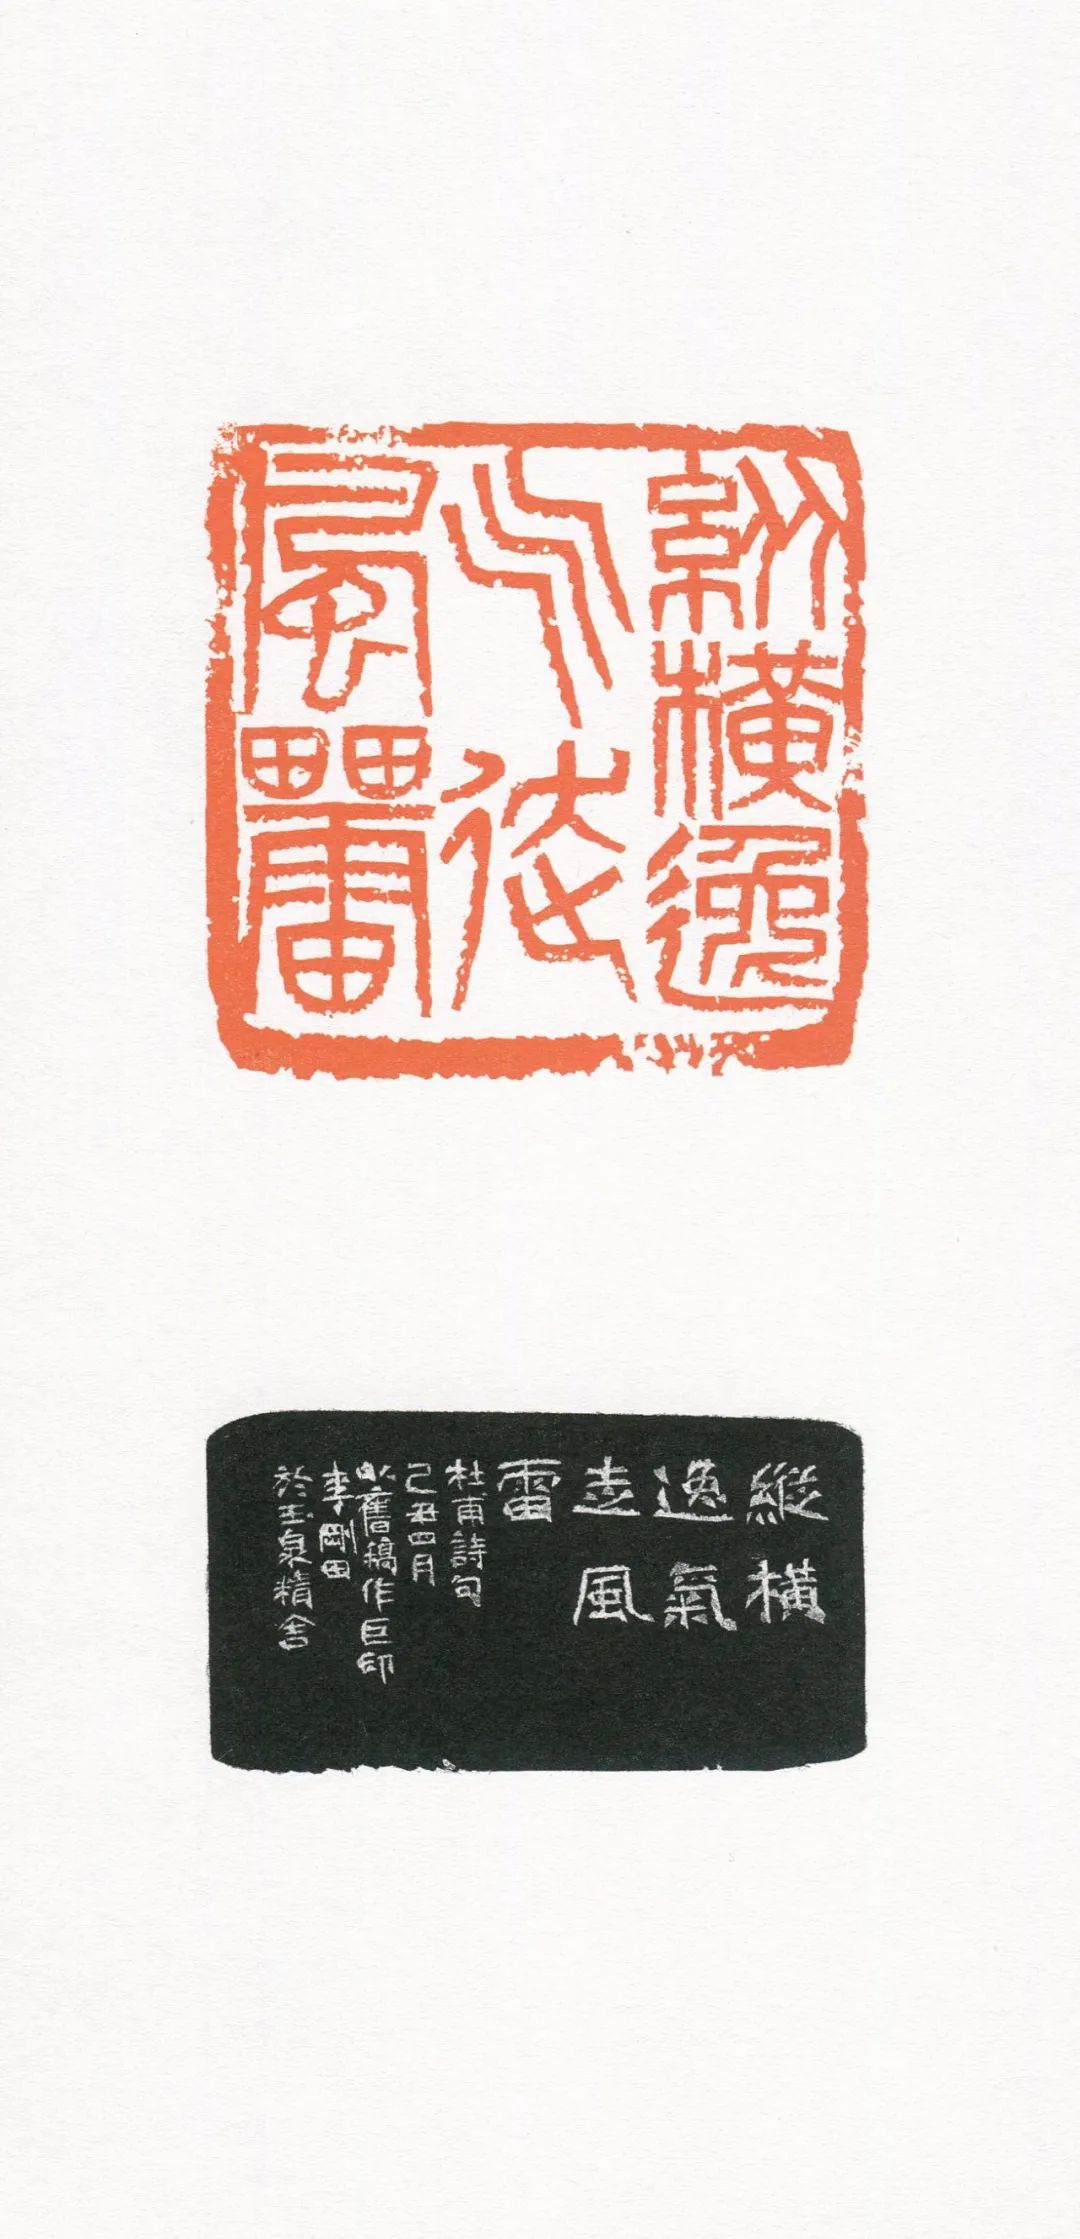 縱橫逸
气走
風雷
縱橫
逸氣
走風
雷
杜甫詩句
己丑四月
以舊稿作巨印
李剛田
於玉泉精舍